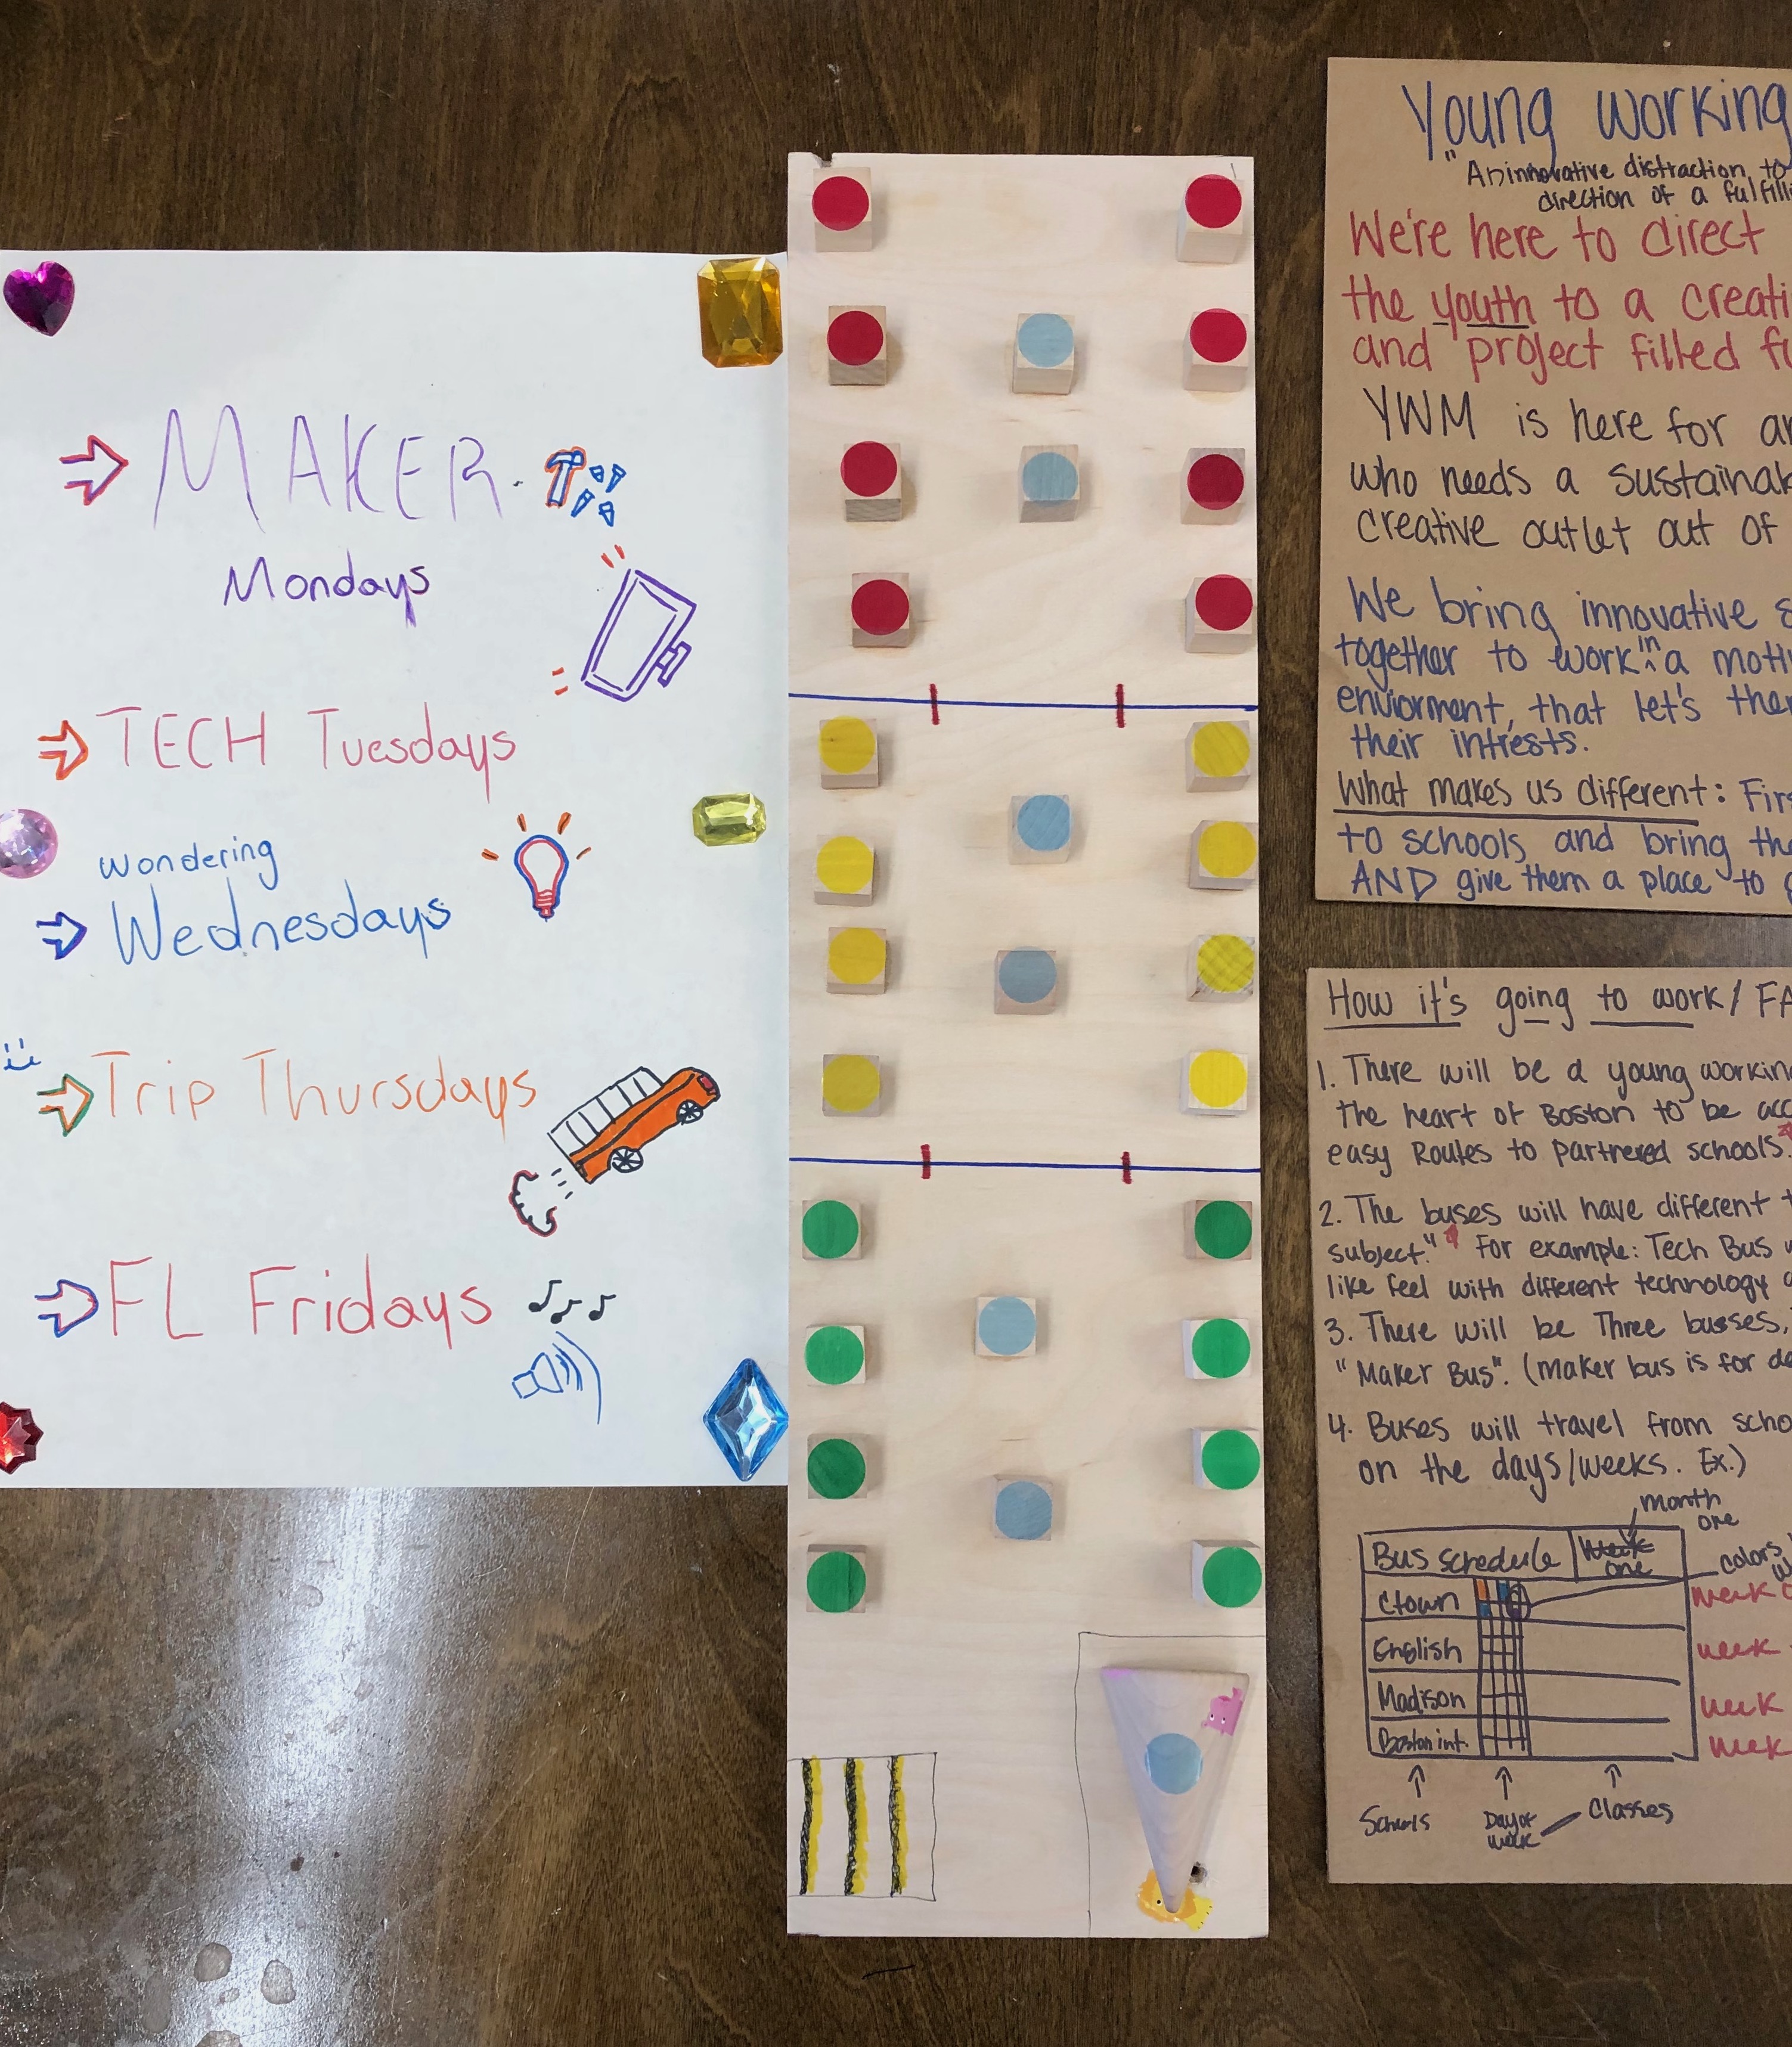 MAKER
Mondays
TECH Tuesdays
Wondering
Wednesdays
Trip Thursdays
FL Fridays
Young working
"An innovative distraction, to
direction of a fulfilli
We're here to direct
the youth to a creati
and project filled fu
YWM is here for an
who needs a sustainab
creative outlet out of
We bring innovative s
together to work in a moti
enviorment, that let's them
their intrests.
What makes us different: Firs
to schools and bring the
AND give them a place to
How it's going to work / FA
1. There will be a young workin
the heart of Boston to be acc
easy Routes to partnered schools.
2. The buses will have different t
subject." For example: Tech Bus w
like feel with different technology
3. There will be Three busses,
"Maker Bus". (maker bus is for de
4. Buses will travel from scho
on the days/weeks. Ex.)
month
one
Bus schedule week one
colors
Ctown week
English week
Madison week
Boston int. week
Schools Day of week Classes